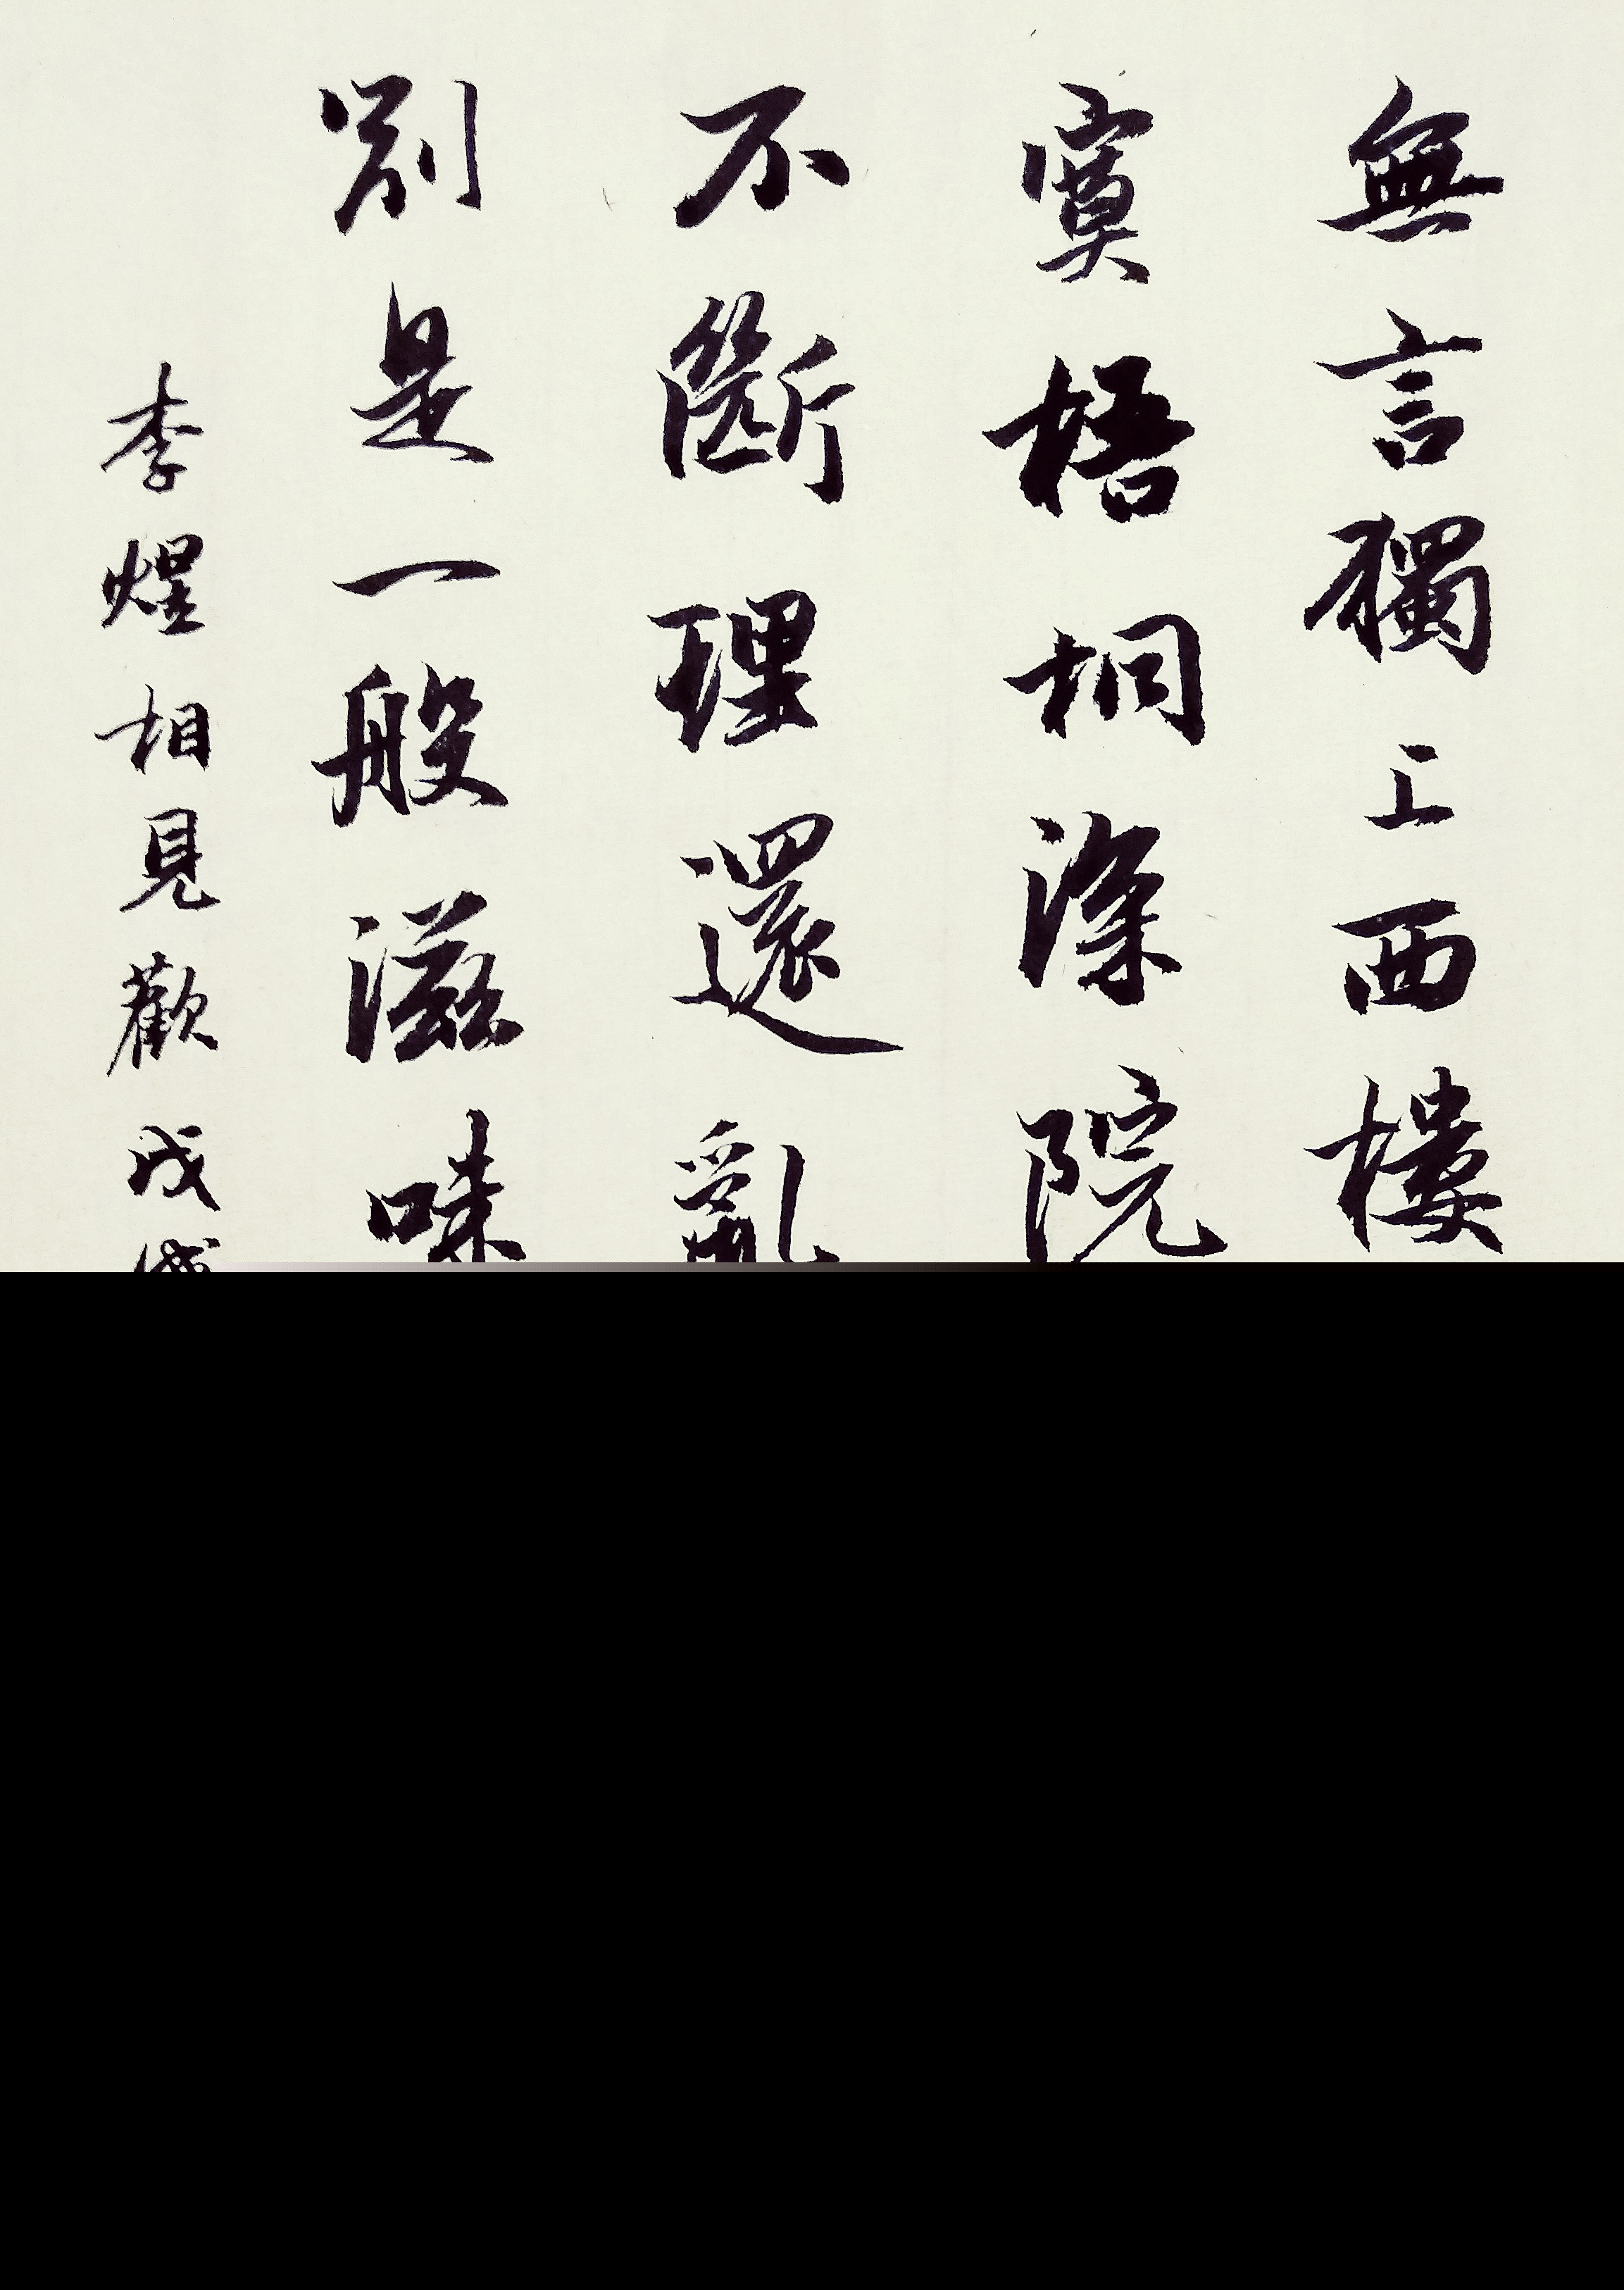 無言獨上西樓
寞梧桐深院
不斷理還亂
別是一般滋味
李煜相見歡戊戌